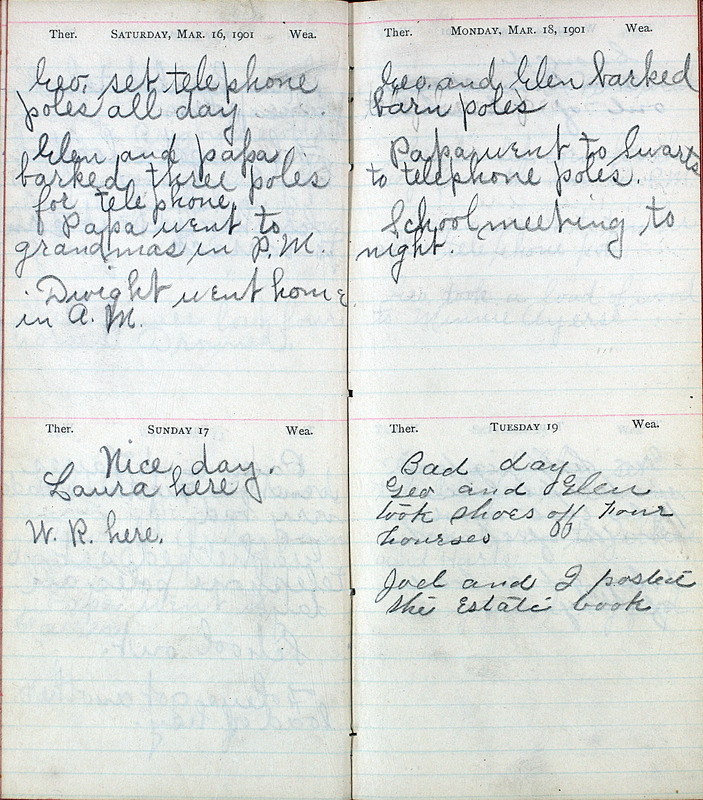 Ther. SATURDAY, MAR. 16, 1901 Wea.
Geo. set telephone
poles all day
Glen and papa
barked three poles
for telephone.
Papa went to
grandmas in P.M.
Dwight went home
in A.M.
Ther. SUNDAY 17 Wea.
Nice day.
Laura here
W. R. here.
Ther. MONDAY, MAR. 18, 1901 Wea.
Geo. and Glen barked
barn poles
Papa went to Swarts
to telephone poles.
School meeting to
night.
Ther. TUESDAY 19 Wea.
Bad day
Geo and Glen
took shoes off four
hourses
Joel and I posted
the Estate book